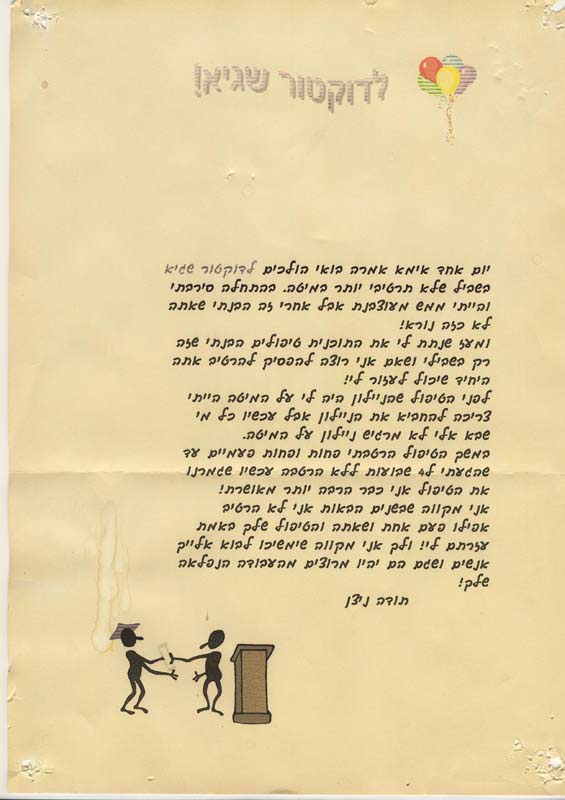 לדוקטור שגיא!
יום אחד אימא אמרה בואי הולכים לדוקטור שגיא
בשביל שלא תרטיבי יותר במיטה. בהתחלה סירבתי
והייתי ממש מעוצבנת אבל אחרי זה הבנתי שאתה
לא כזה נורא!
ומעז שנתת לי את התוכנית טיפולים הבנתי שזה
רק בשבילי ושאם אני רוצה להפסיק להרטיב אתה
היחיד שיכול לעזור לי!
לפני הטיפול שהניילון היה לי על המיטה הייתי
צריכה להחביא את הניילון אבל עכשיו כל מי
שבא אלי לא מרגיש ניילון על המיטה.
במשך הטיפול הרטבתי פחות ופחות פעמיים עד
שהגעתי ל4 שבועות ללא הרטבה עכשיו שגמרנו
את הטיפול אני כבר הרבה יותר מאושרת!
אני מקווה שבשנים הבאות אני לא הרטיב
אפילו פעם אחת ושאתה והטיפול שלך באמת
עזרתם לי! ולך אני מקווה שימשיכו לבוא אלייך
אנשים ושגם הם יהיו מרוצים מהעבודה הנפלאה
שלך!
תודה ניצן